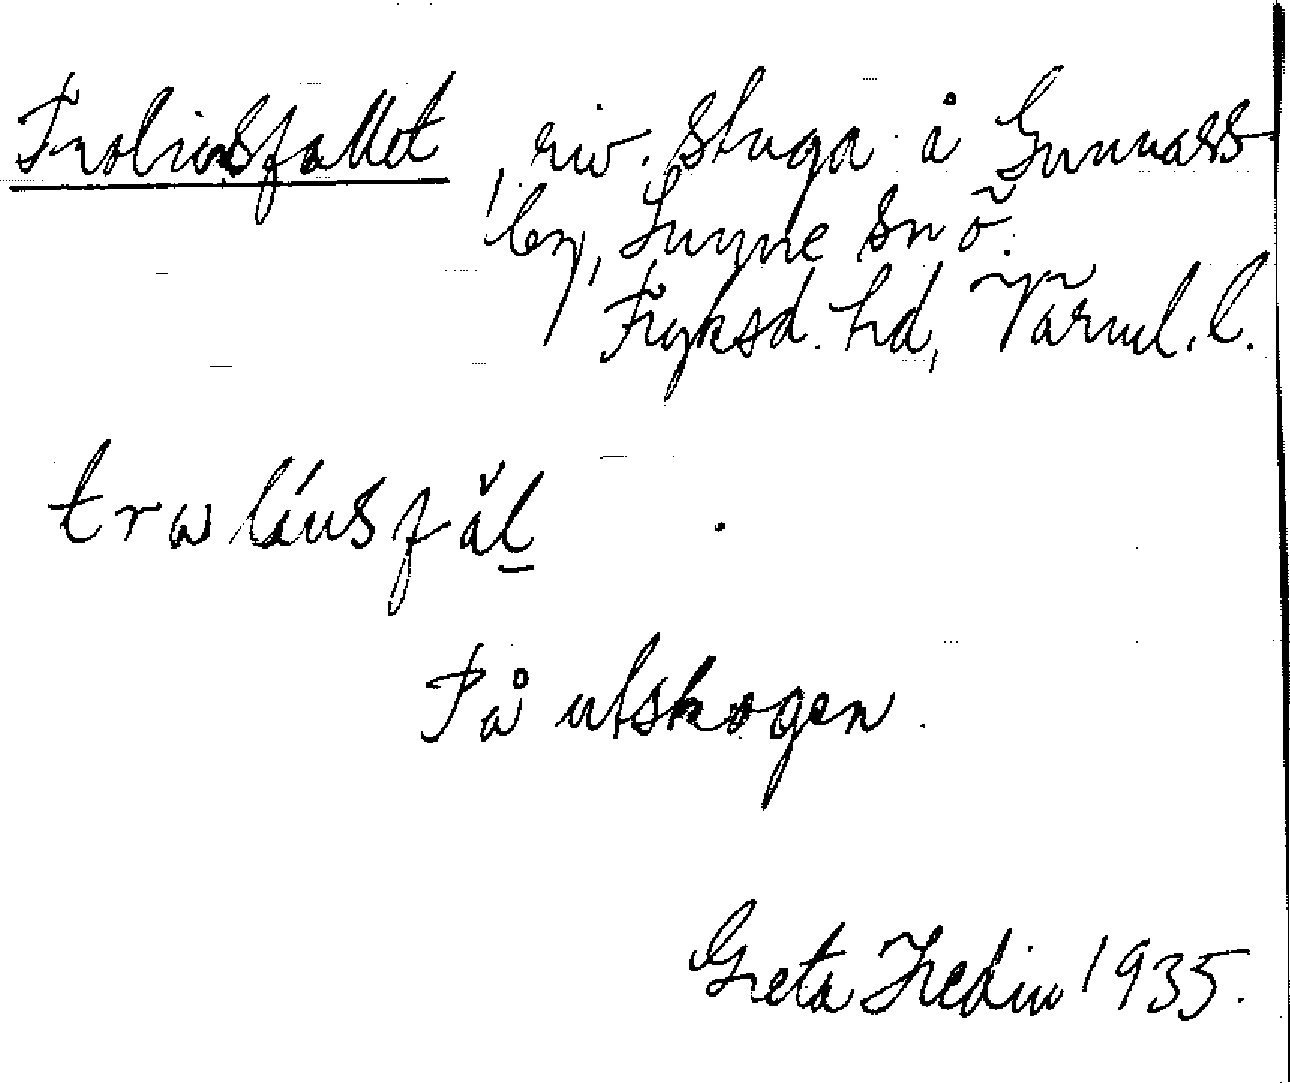 , riv. stuga å Gunnars
by, Sunne sn ö.
Fryksd. hd, Värml. l.
På utskogen.
Greta Hedin 1935.